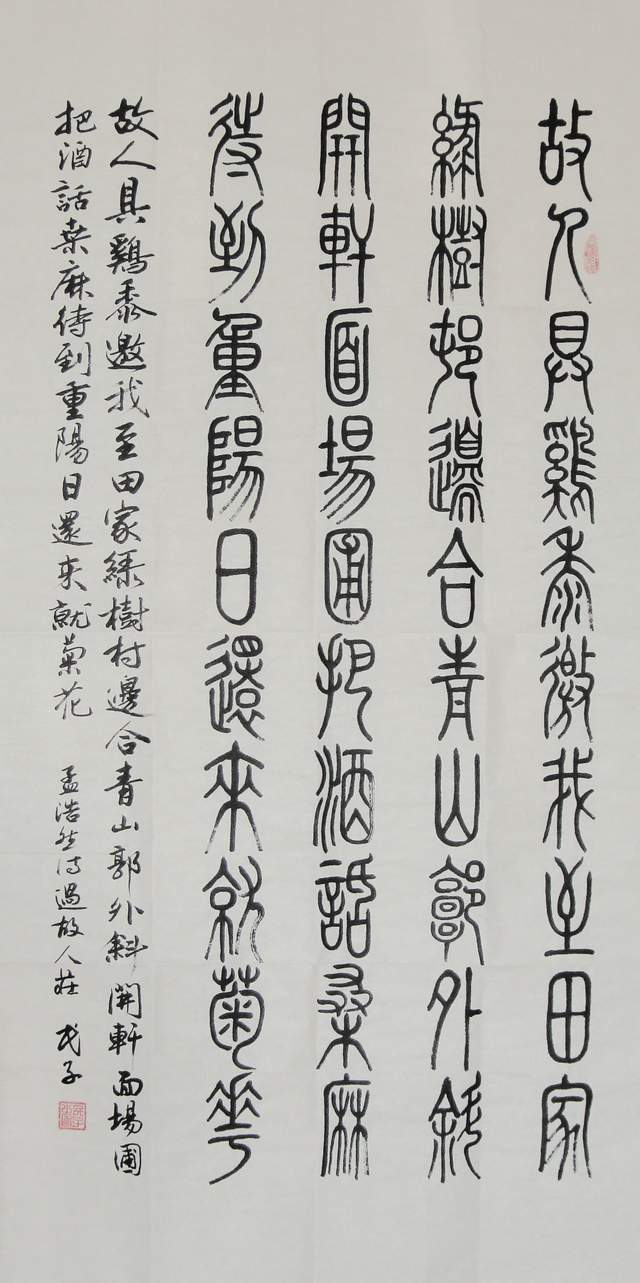 故人具鷄黍邀我至田家
綠樹邨邊合青山郭外斜
開軒面場圃把酒話桑麻
待到重陽日還來就菊華
故人具鷄黍邀我至田家綠樹村邊合青山郭外斜開軒面場圃
把酒話桑麻待到重陽日還来就菊花 孟浩然詩過故人莊 弌子